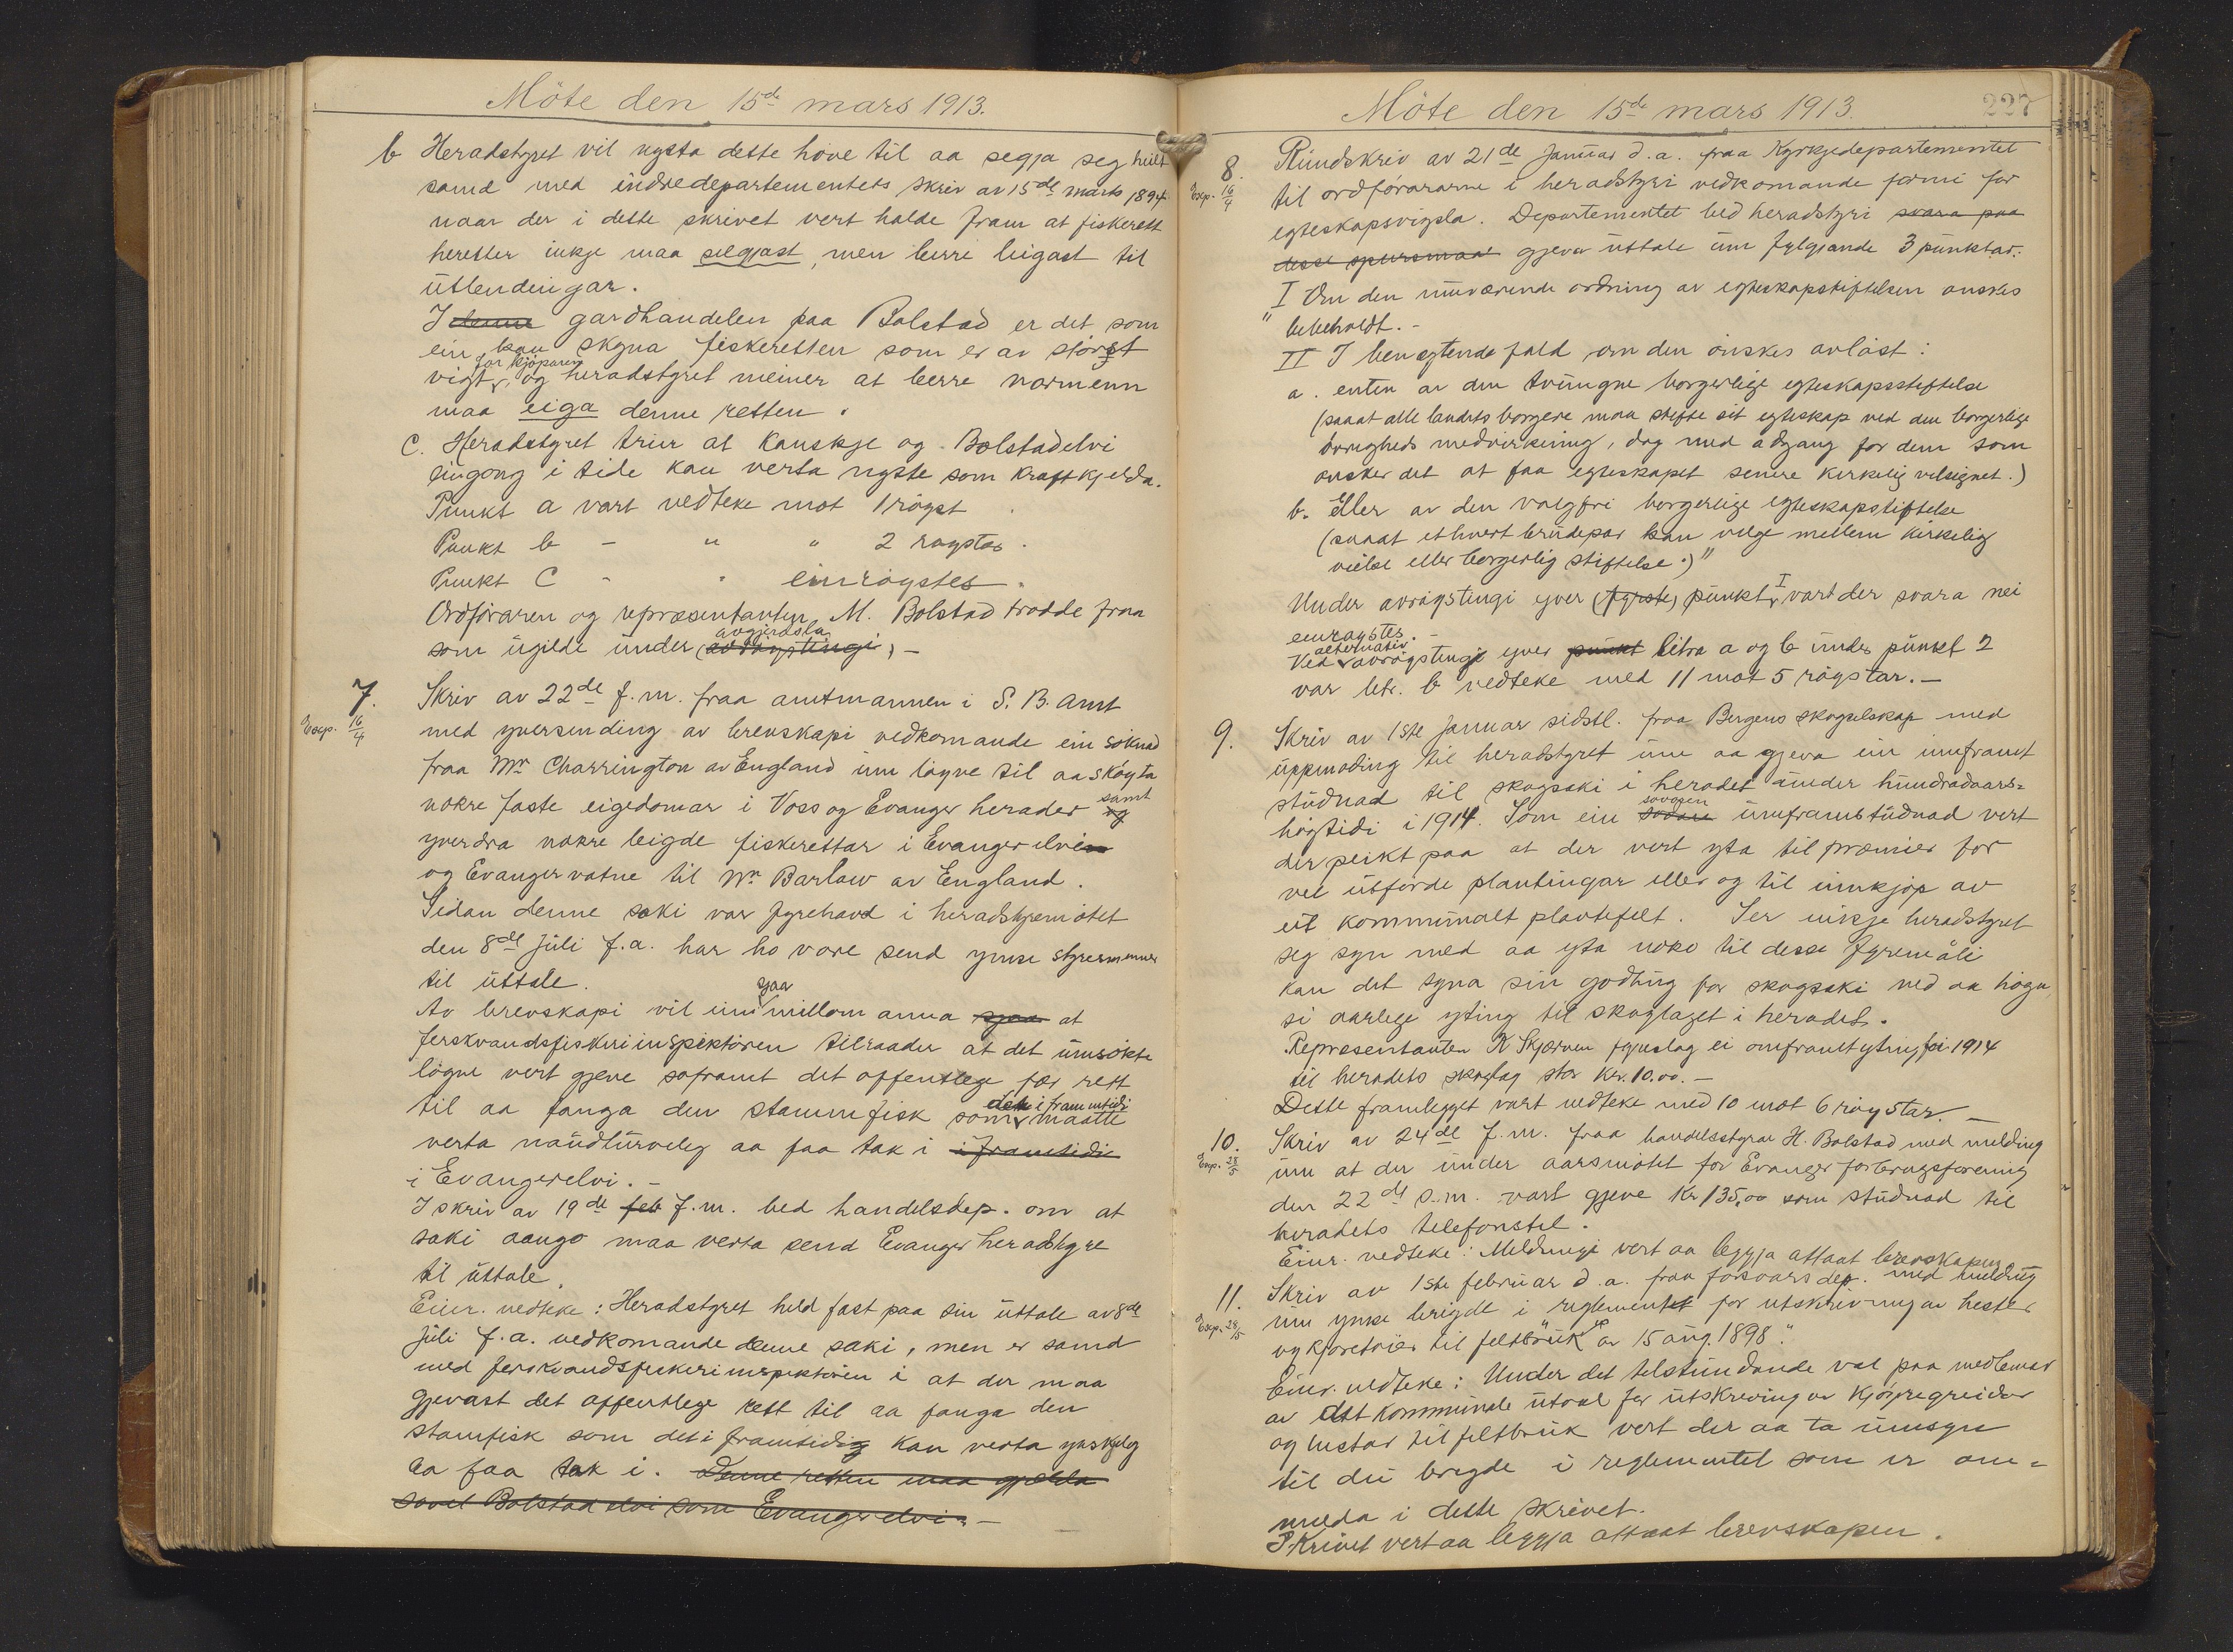 Möte den 15de mars 1913.
b Heradstyret vil nytta dette høve til aa segja seg heilt
samd med indredepartementets skriv av 15de marts 1894
naar der i dette skrivet vert halde fram at fiskerett
heretter inkje maa selgjast, men berre leigast til
utlendingar.
I denne gardhandelen paa Bolstad er det som
ein kan skyna fiskeretten som er av störst
for kjöparen
vigt, og heradstyret meiner at berre normenn
maa eiga denne retten.
C. Heradstyret trur at kanskje og Bolstadelvi
eingong i tide kan verta nytte som kraftkjelda.
Punkt a vart vedteke mot 1 röyst
Punkt b - " " 2 röystar.
Punkt C - " einröystes.
Ordföraren og repræsentanten M. Bolstad trødde fraa
avgjerdsla
som ugilde under (avröystingi) -
7.
Exp. 16/4
Skriv av 22de f.m. fraa amtmannen i S. B. Amt
med yversending av brevskapi vedkomande ein söknad
fraa Mr Charrington av England um löyve til aa sköyta
samt
nokre faste eigedomar i Voss og Evanger herader og
yverdra nokre leigde fiskerettar i Evangerelvi
og Evangervatne til Mr Barlow av England.
Sidan denne saki var fyrehavd i heradstyremötet
den 8de juli f.a. har ho vore send ymse styresmenner
til uttale.
sjaa
Av brevskapi vil ein millom anna sjaa at
ferskvandsfiskeriinspektören tilraader at det umsökte
löyve vert gjeve soframt det offentlege fær rett
dei i framtidi
til aa fanga den stammfisk som maatte
verta naudturveleg aa faa tak i i framtidi
i Evangerelvi. -
I skriv av 19de feb f.m. bed handelsdep. om at
saki aango maa verta send Evanger heradstyre
til uttale.
Einr. vedteke: Heradstyret held fast paa sin uttale av 8de
juli f.a. vedkomande denne saki, men er samd
med ferskvandsfiskeriinspektören i at der maa
gjevast det offentlege rett til aa fanga den
stamfisk som det i framtidi kan verta ynskjeleg
aa faa tak i. Denne retten maa gjelda
sovel Bolstadelvi som Evangerelvi. -
Möte den 15de mars 1913.
227
8.
Exp. 16/4
Rundskriv av 21de Januar d.a. fraa Kyrkjedepartementet
til ordförararne i heradstyri vedkomande formi for
egteskapsvigsla. Departementet bed heradstyri svara paa
desse spursmaal gjeva uttale um fylgjande 3 punktar:
I Om den nuværende ordning av egteskapstiftelsen ønskes
" bibeholdt. -
II I benegtende fald om den önskes avlöst:
a. enten av den tvungne borgerlige egteskapsstiftelse
(saaat alle landets borgere maa stifte sit egteskap ved den borgerlige
övrigheds medvirkning, dog med adgang for dem som
önsker det at faa egteskapet senere kirkelig velsignet.)
b. Eller av den valgfri borgerlige egteskapstiftelse
(saaat ethvert brudepar kan velge mellem kirkelig
vielse eller borgerlig stiftelse.)"
Under avröystingi yver (fyrste) punkt I vart der svara nei
einröystes. -
alternativ
Ved avröystingi yver punkt litra a og b under punkt 2
var litr. b vedteke med 11 mot 5 röystar. -
9.
Skriv av 1ste Januar sidstl. fraa Bergens skogselskap med
uppmoding til heradstyret um aa gjeva ein umframt
studnad til skogsaki i heradet under hundradaars-
sovoren
högtidi i 1914. Som ein sodan umframstudnad vert
der peikt paa at der vert yta til præmier for
vel utförde plantingar eller og til innkjöp av
eit kommunalt plantefelt. Ser inkje heradstyret
seg syn med aa yta noko til desse fyremåli
kan det syna sin godhug for skogsaki ved aa högja
si aarlege yting til skoglaget i heradet.
Repræsentanten K Skjerven fyreslog ei omframt yting for 1914
til heradets skoglag stor kr. 10.00. -
Dette framlegget vart vedteke med 10 mot 6 röystar. -
10.
Exp. 28/5
Skriv av 24de f.m. fraa handelsstyrar H. Bolstad med melding
um at der under aarsmötet for Evanger forbrugsforening
den 22de s.m. vart gjeve kr 135,00 som studnad til
heradets telefonstel.
Einr. vedteke: Meldingi vert aa leggja attaat brevskapen.
11.
Exp. 28/5
Skriv av 1ste februar d.a. fraa forsvarsdep. med melding
um ymse brigde i reglementet for utskrivning av hester
og kjøretøier til feltbruk av 15 aug. 1898."
Einr. vedteke: Under det tilstundande val paa medlemar
av det kommunale utval for utskriving av kjöyregreidar
og hestar til feltbruk vert der aa ta umsyn
til dei brigde i reglementet som er om-
melda i dette skrivet.
Skrivet vert aa leggja attaat brevskapen.